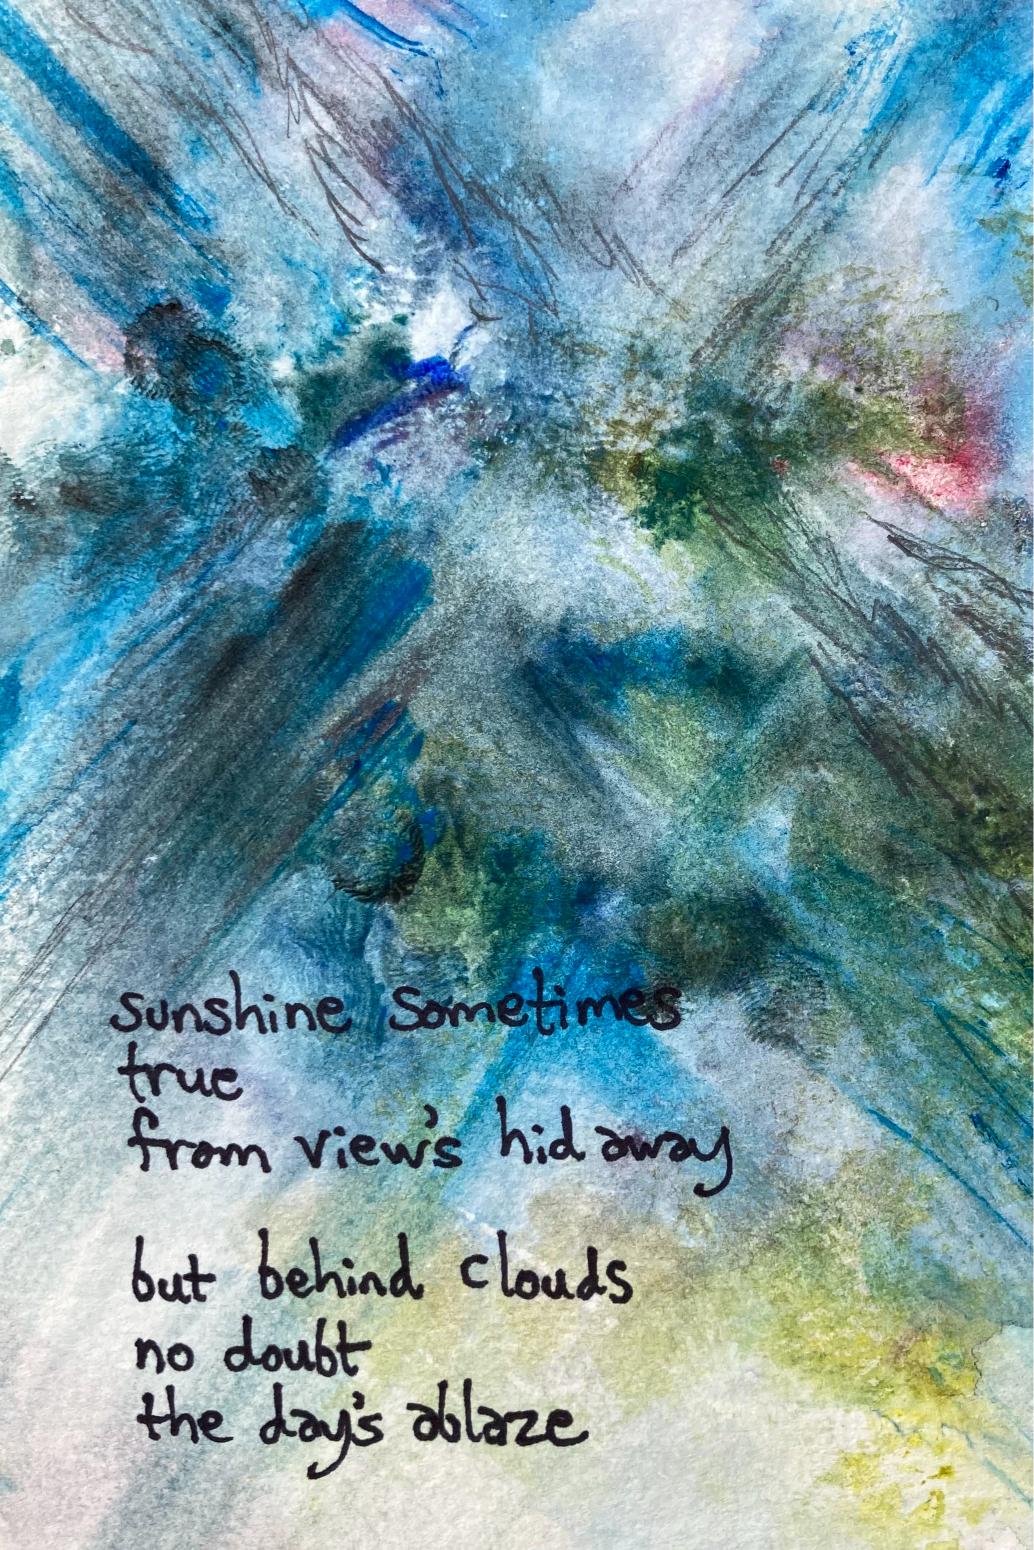 sunshine sometimes
true
from view's hid away
but behind clouds
no doubt
the day's ablaze